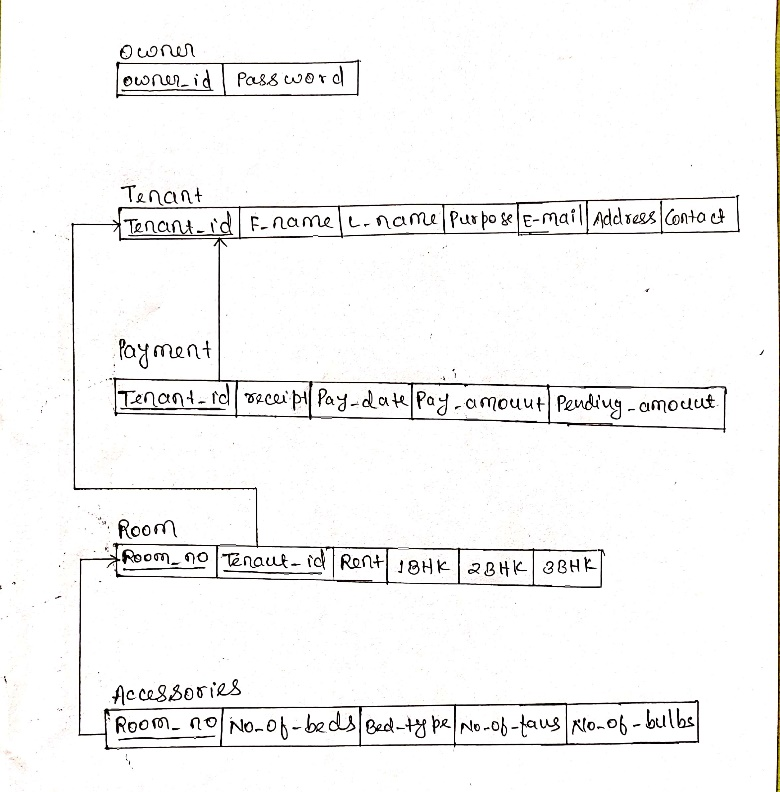 Owner
owner_id Password
Tenant
Tenant_id F_name L_name Purpose E-mail Address Contact
Payment
Tenant_id receipt Pay_date Pay_amount Pending_amount
Room
Room_no Tenant_id Rent 1BHK 2BHK 3BHK
Accessories
Room_no No_of_beds Bed_type No_of_fans No_of_bulbs